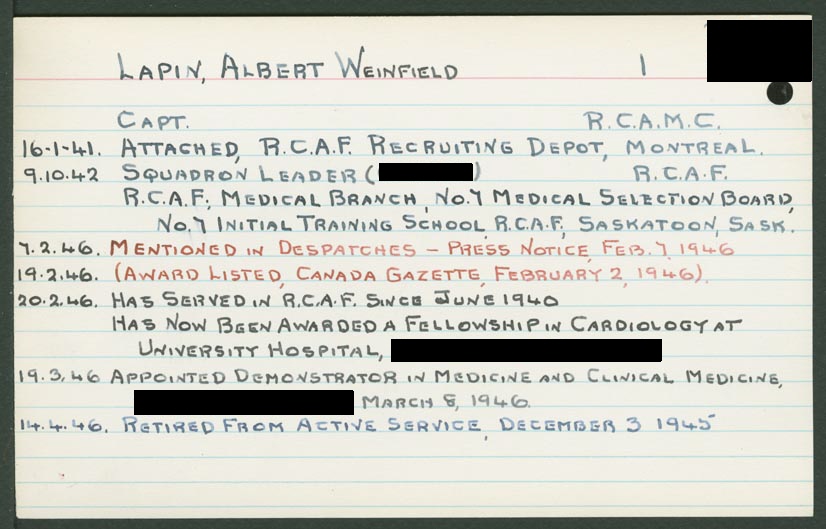 LAPIN, ALBERT WEINFIELD 1
CAPT. R.C.A.M.C.
16-1-41. ATTACHED, R.C.A.F. RECRUITING DEPOT, MONTREAL.
9.10.42 SQUADRON LEADER ( ) R.C.A.F.
R.C.A.F., MEDICAL BRANCH, NO.7 MEDICAL SELECTION BOARD,
NO.7 INITIAL TRAINING SCHOOL, R.C.A.F., SASKATOON, SASK.
7.2.46. MENTIONED IN DESPATCHES - PRESS NOTICE, FEB. 7, 1946
19.2.46. (AWARD LISTED, CANADA GAZETTE, FEBRUARY 2, 1946).
20.2.46. HAS SERVED IN R.C.A.F. SINCE JUNE 1940
HAS NOW BEEN AWARDED A FELLOWSHIP IN CARDIOLOGY AT
UNIVERSITY HOSPITAL,
19.3.46 APPOINTED DEMONSTRATOR IN MEDICINE AND CLINICAL MEDICINE,
MARCH 8, 1946.
14.4.46. RETIRED FROM ACTIVE SERVICE, DECEMBER 3 1945